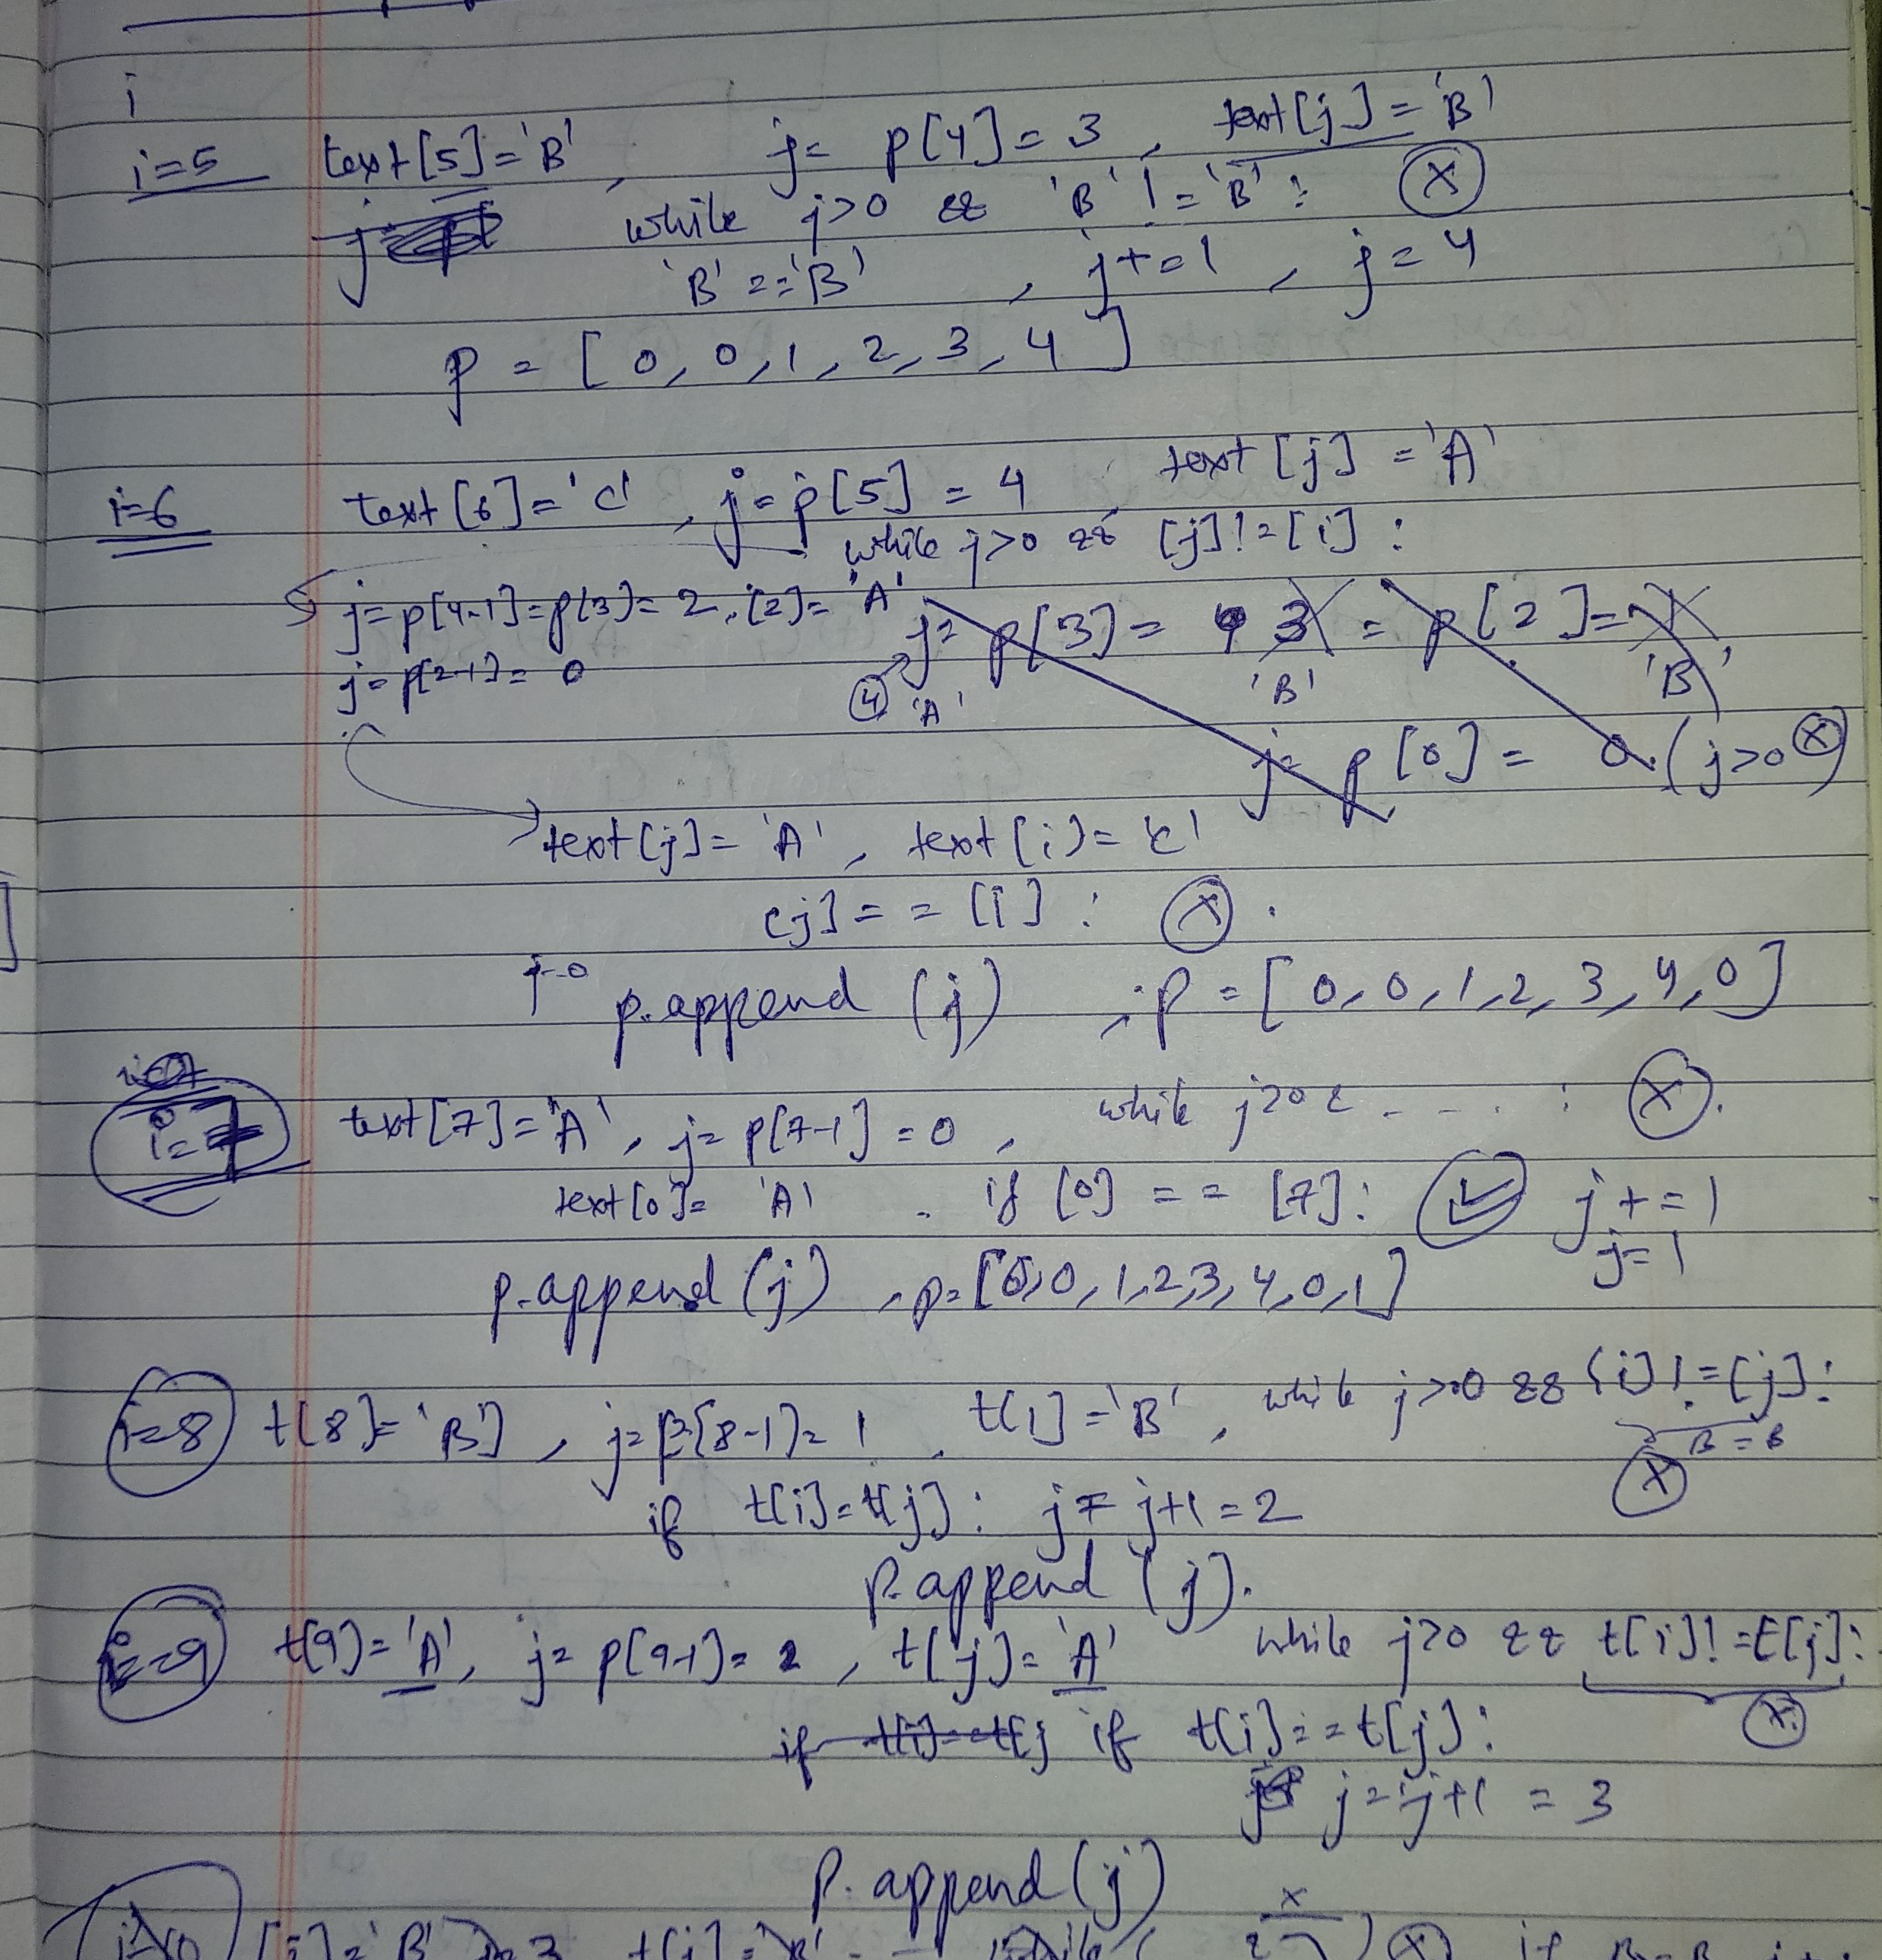 i
i=5 text[5]='B' , j= p[4]=3 , text[j]='B'
while j>0 && 'B' != 'B' : X
'B' == 'B' , j+=1 , j=4
p = [0,0,1,2,3,4]
i=6 text[6]='C' , j=p[5] = 4 , text[j] = 'A'
while j>0 && [j]!=[i] :
j=p[4-1]=p[3]=2, [2]= 'A' j= p[3]= 3 = p[2]=
j=p[2-1]=0 4 'A' 'B' 'B'
j= p[0] = 0. (j>0 X)
text[j]= 'A' , text[i]= 'C'
[j] == [i] : X .
j=0 p.append (j) , p = [0,0,1,2,3,4,0]
i=7 text[7]='A' , j= p[7-1]=0 , while j>0 & - - - . : X .
text[0]= 'A' . if [0] == [7]: ✓ j+=1
j=1
p.append (j) , p=[0,0,1,2,3,4,0,1]
i=8 t[8]='B'] , j=p[8-1]=1 , t[1]='B' , while j>0 && [i]!=[j]:
B=B
X
if t[i]=t[j]: j= j+1=2
p.append (j).
i=9 t[9]='A' , j= p[9-1]=2 , t[j]='A' while j>0 && t[i]!=t[j]:
X
if t[i]=t[j if t[i]==t[j]:
j=j+1 = 3
p.append(j)
i=10 [i]='B' j=3 if B=B